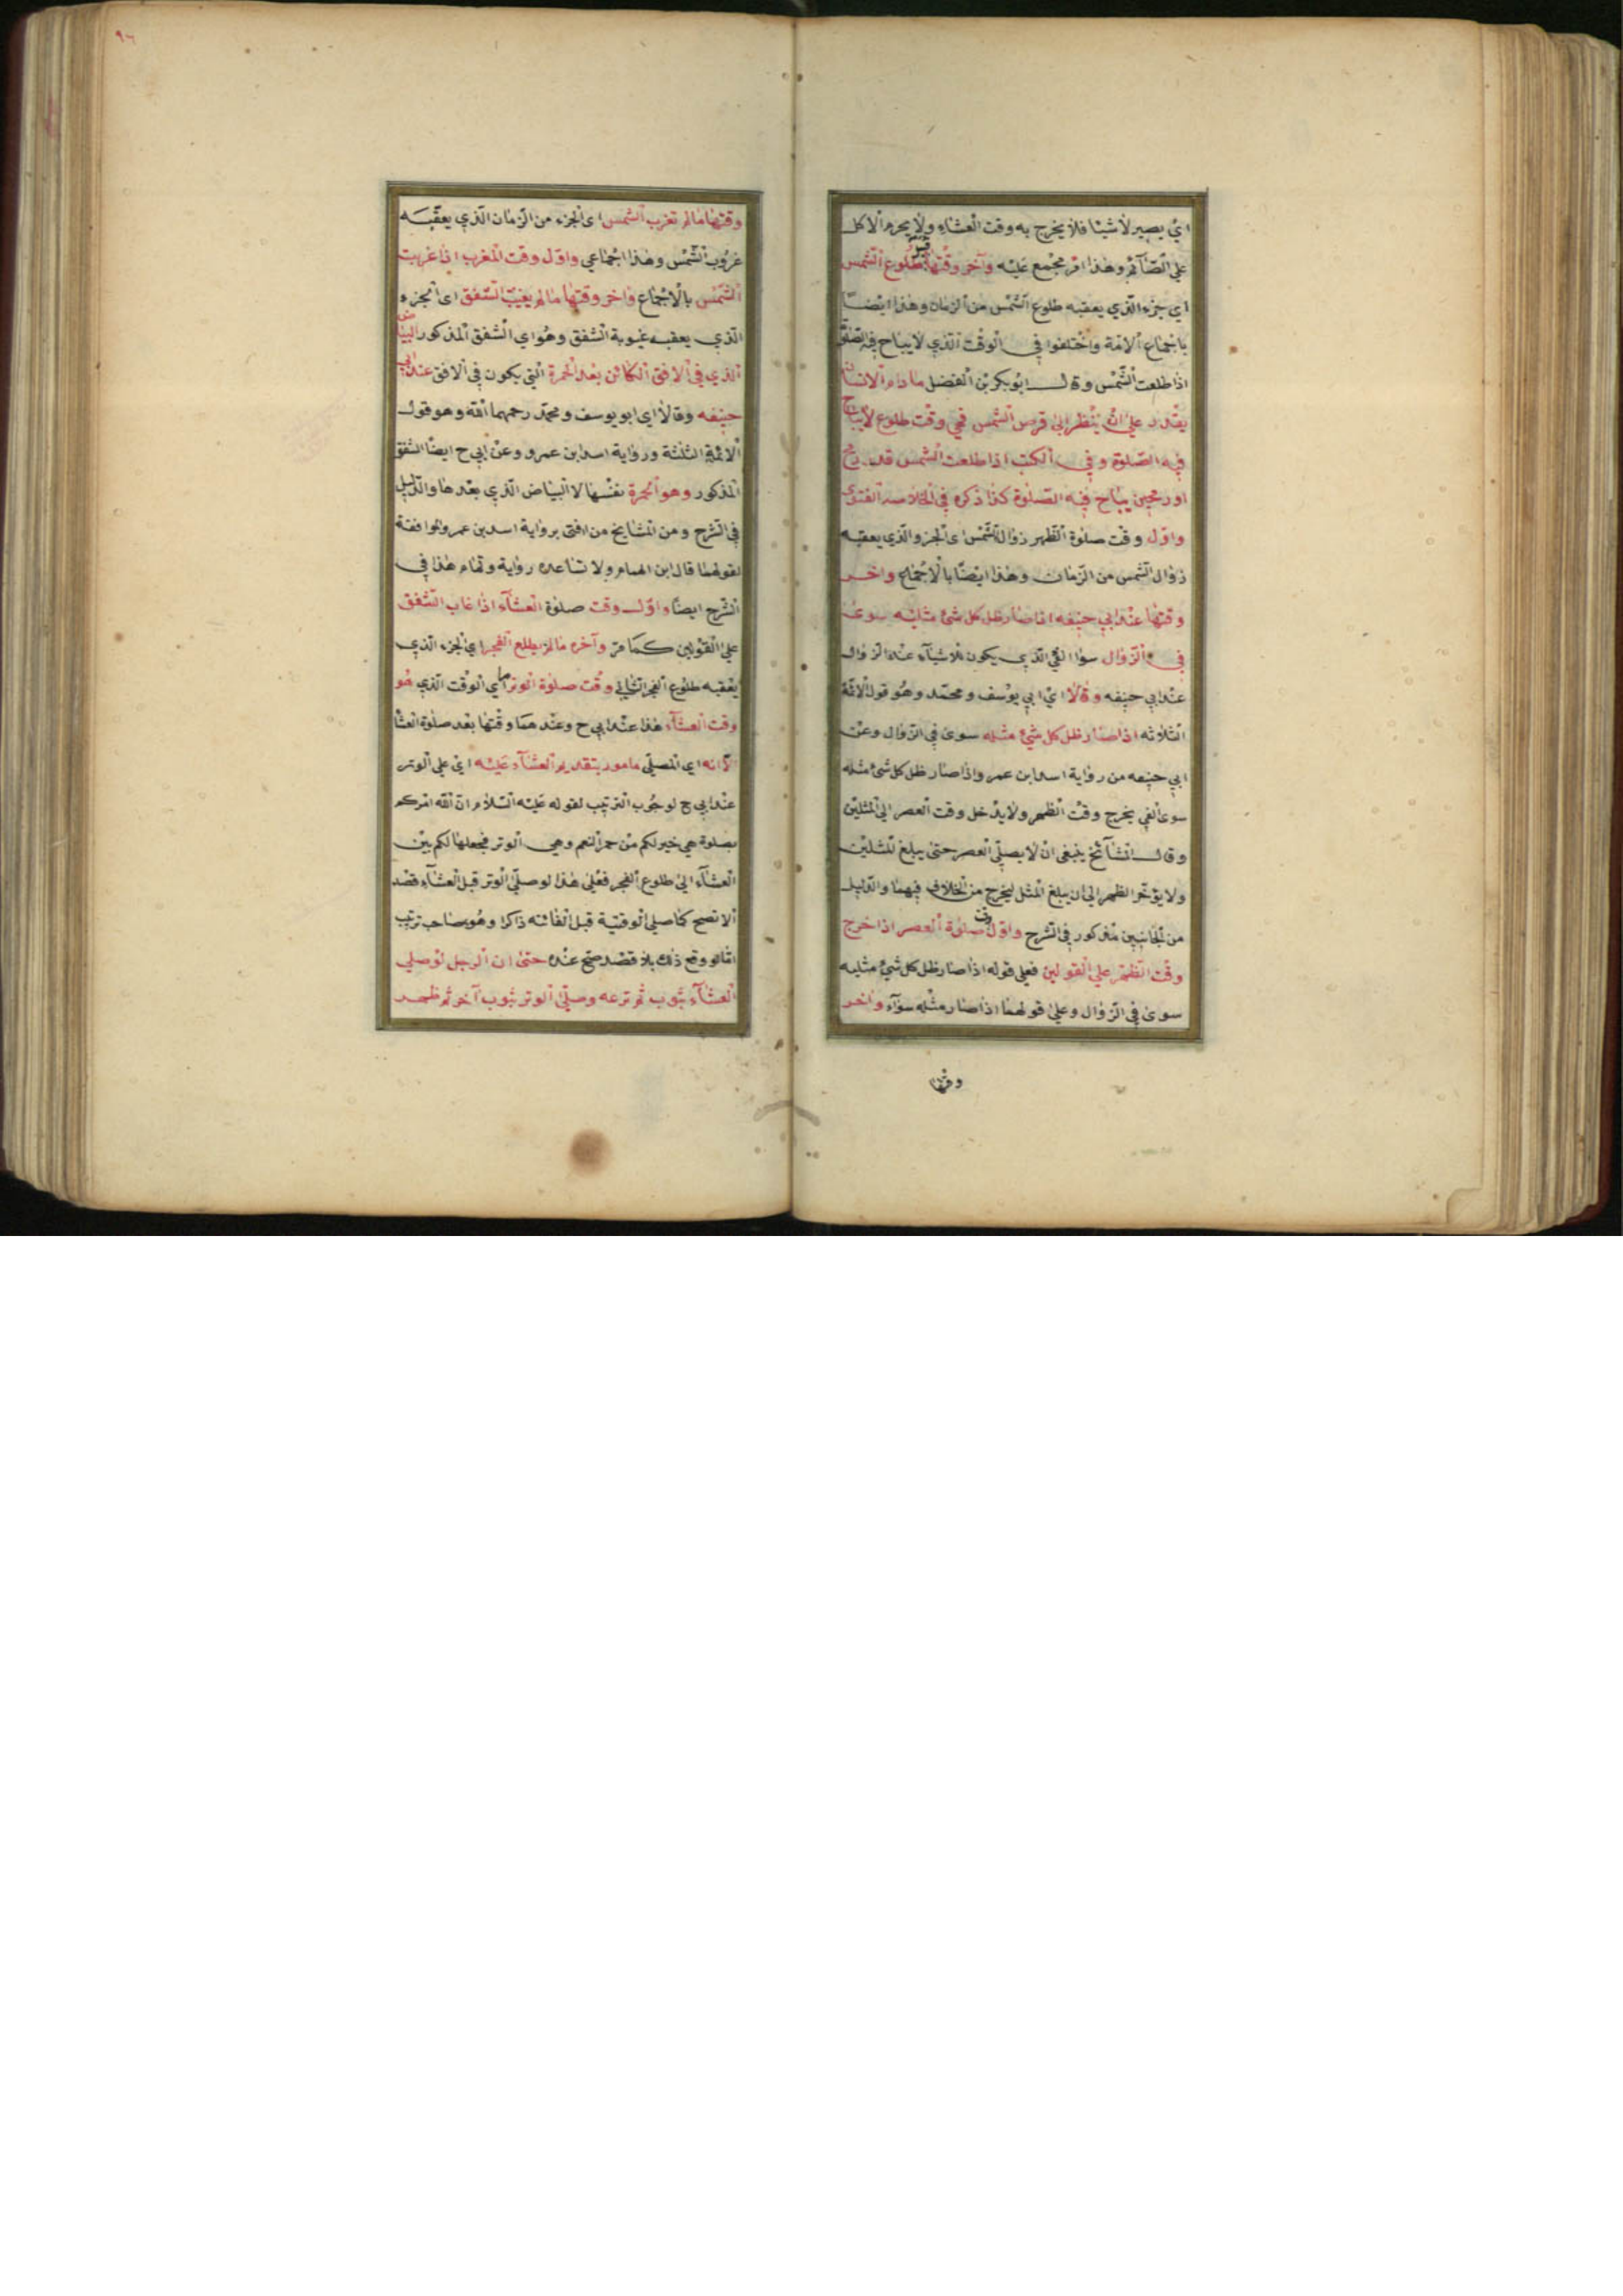 اي يصير لاشيئا فلا يخرج به وقت العشاء ولا يحرم الاكل
على الصائم وهذا امر مجمع عليه وآخر وقتها قبيل طلوع الشمس
اي جزء الذي يعقبه طلوع الشمس من الزمان وهذا ايضا
باجماع الامة واختلفوا في الوقت الذي لايباح فيه الصلوة
اذا طلعت الشمس وقال ابو بكر بن الفضل ما دام الانسان
يقدر على ان ينظر الى قرص الشمس فهي وقت طلوع لايباح
فيه الصلوة وفي الكتب اذا طلعت الشمس قدر رمح
او رمحين يباح فيه الصلوة كذا ذكره في الخلاصة الفتوى
واول وقت صلوة الظهر زوال الشمس اى الجزء الذي يعقبه
زوال الشمس من الزمان وهذا ايضا بالاجماع واخر
وقتها عند ابي حنيفه اذا صار ظل كل شئ مثليه سوى
في الزوال سوا الفي الذي يكون للاشيآء عند الزوال
عند ابي حنيفه وقالا اي ابي يوسف ومحمد وهو قول الائمة
الثلاثه اذا صار ظل كل شئ مثله سوى في الزوال وعن
ابي حنيفه من رواية اسد ابن عمر واذا صار ظل كل شئ مثله
سوى الفي يخرج وقت الظهر ولا يدخل وقت العصر الى المثلين
وقال المشآئخ ينبغى ان لا يصلي العصر حتى يبلغ المثلين
ولا يؤخر الظهر الى ان يبلغ المثل ليخرج من الخلاف فيهما والدليل
من الجانبين مذكور في الشرح واول وقت صلوة العصر اذا خرج
وقت الظهر على القولين فعلى قوله اذا صار ظل كل شئ مثليه
سوى في الزوال وعلى قولهما اذا صار مثله سوآء واخر
وقتها
٩٦
وقتها مالم تغرب الشمس اى الجزء من الزمان الذي يعقبه
غروب الشمس وهذا اجماعي واول وقت المغرب اذا غربت
الشمس بالاجماع واخر وقتها مالم يغيب الشفق اى الجزء
الذي يعقبه غيبوبة الشفق وهو اي الشفق المذكور البياض
الذي في الافق الكائن بعد الحمرة التي يكون في الافق عند ابي
حنيفه وقالا اى ابو يوسف ومحمد رحمهما الله وهو قول
الائمة الثلثة ورواية اسد ابن عمرو وعن ابي ح ايضا الشفق
المذكور وهو الحمرة نفسها لا البياض الذي بعدها والدليل
في الشرح ومن المشايخ من افتى برواية اسد بن عمرو لموافقة
لقولهما قال ابن الهمام ولا تساعده رواية وتمام هذا في
الشرح ايضا واول وقت صلوة العشآء اذا غاب الشفق
على القولين كما مر وآخره مالم يطلع الفجر اي الجزء الذي
يعقبه طلوع الفجر الثاني وقت صلوة الوتر اي الوقت الذي هو
وقت العشآء هذا عند ابي ح وعندهما وقتها بعد صلوة العشا
الا انه اي المصلي مامور بتقديم العشآء عليه اي على الوتر
عند ابي ح لوجوب الترتيب لقوله عليه السلام ان الله امركم
بصلوة هي خير لكم من حمر النعم وهي الوتر فجعلها لكم بين
العشآء الى طلوع الفجر فعلى هذا لو صلى الوتر قبل العشآء قصد
الا تصح كما صلى الوقتية قبل الفائته ذاكرا وهو صاحب ترتيب
اما لو وقع ذلك بلا قصد صح عنده حتى ان الرجل لو صلي
العشآء بثوب ثم نزعه وصلى الوتر بثوب آخر ثم ظهر